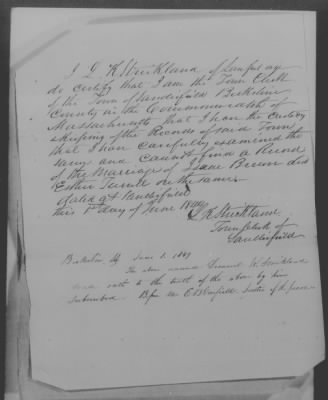 I L K Strickland of Lawful age
do certify that I am the Town Clerk
of the Town of Sandisfield Berkshire
County in the Commonwealth of
Massachusetts that I have the Custody
& keeping of the Records of said Town
that I have carefully examined the
same and Cannot find a Record
of the Marriage of Isaac
Esther on the same.
Dated at Sandisfield
this 1st day of June
L K Strickland
Town Clerk of
Sandisfield
Berkshire SS June 1. 1849
The above named Strickland
made oath to the truth of the above by him
subscribed. Before me Justice of the peace